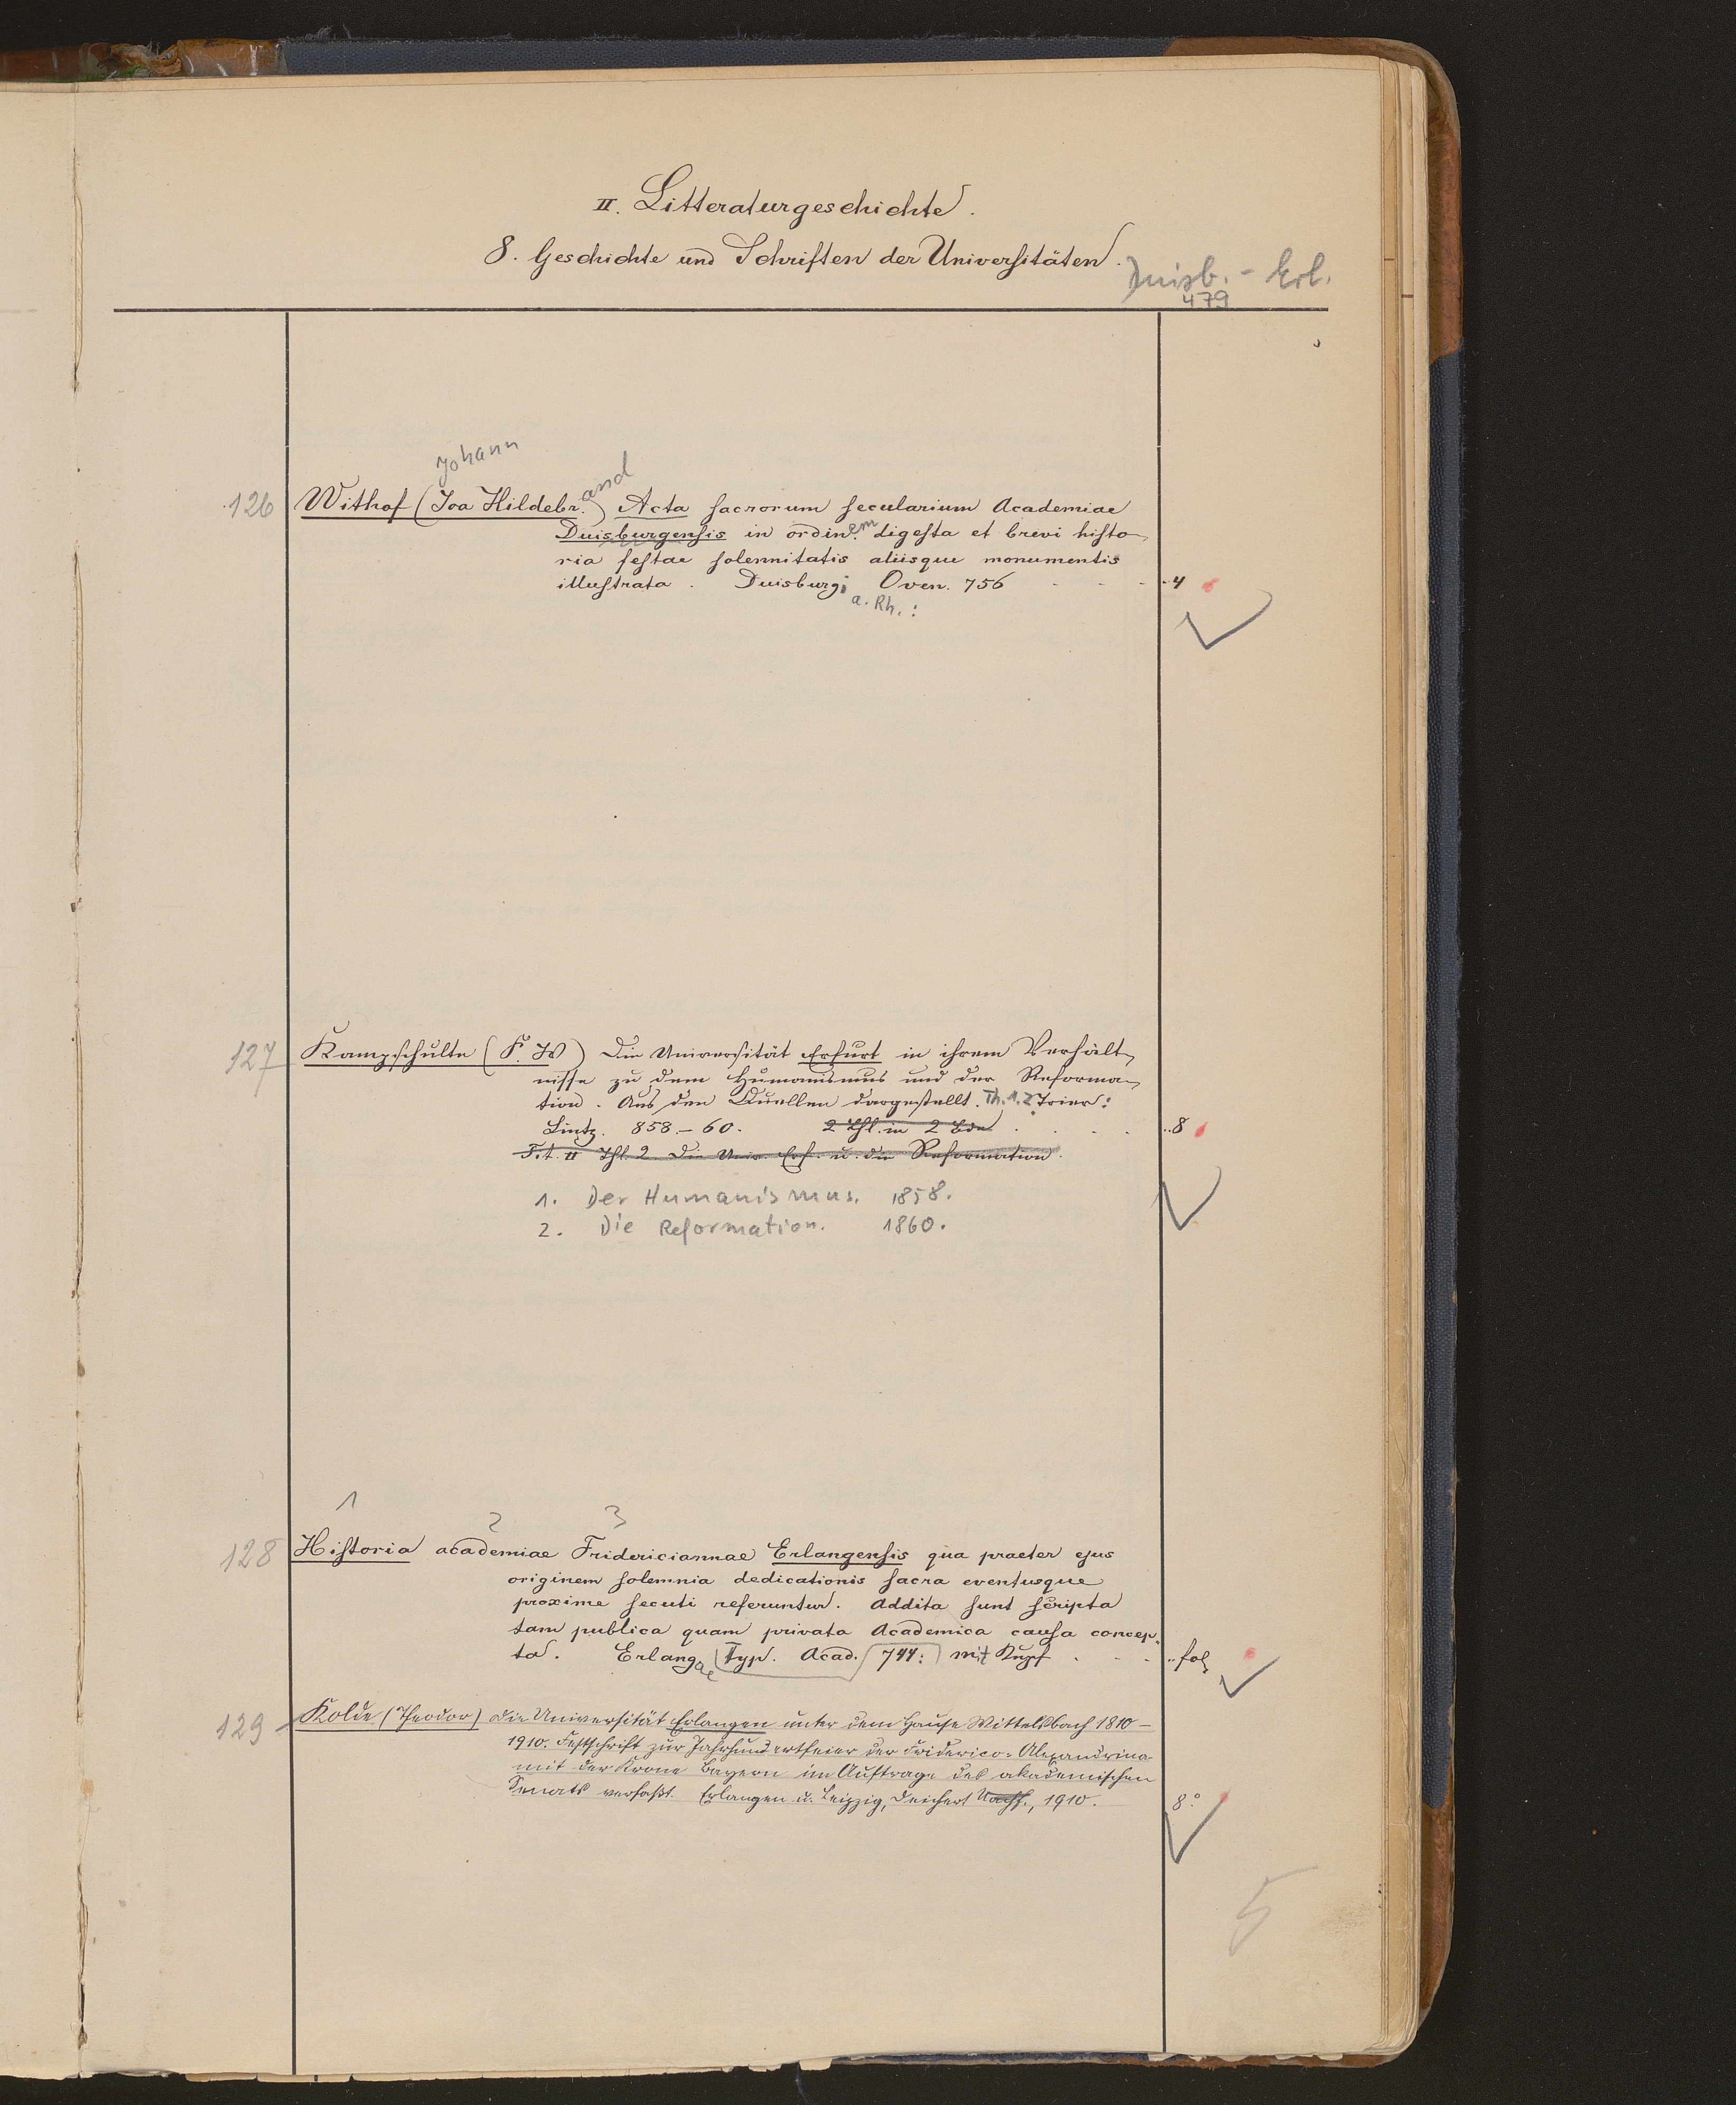 II. Litteraturgeschichte.
8. Geschichte und Schriften der Universitäten.
Duisb. - Erl.
479
Johann
and
126 Withof (Joa Hildebr.) Acta sacrorum secularium Academiae
Duisburgensis in ordin.em digesta et brevi histo-
ria festae solennitatis aliisque monumentis
illustrata. Duisburgi Oven. 756 - - - 4
a. Rh.:
127 Kampschulte (F. W) Die Universität Erfurt in ihrem Verhält-
nisse zu dem Humanismus und der Reforma-
tion. Aus den Quellen dargestellt. Th. 1. 2 Trier:
Lintz. 858-60. 2 Thl. in 2 Bde . . . 8
Tit. II Thl. 2. Die Univ. Erf. u. die Reformation.
1. Der Humanismus. 1858.
2. Die Reformation. 1860.
1 2 3
128 Historia academiae Fridericiannae Erlangensis qua praeter ejus
originem solemnia dedicationis sacra eventusque
proxime secuti referuntur. Addita sunt scripta
tam publica quam privata Academica causa concep-
ta. Erlangae Typ. Acad. 744: mit Kupf . - - fol
129 Kolde (Theodor) Die Universität Erlangen unter dem Hause Wittelsbach 1810-
1910. Festschrift zur Jahrhundertfeier der Friderico-Alexandrina
mit der Krone Bayern im Auftrage des akademischen
Senats verfaßt. Erlangen u. Leipzig, Deichert Nachf., 1910. 8°
5